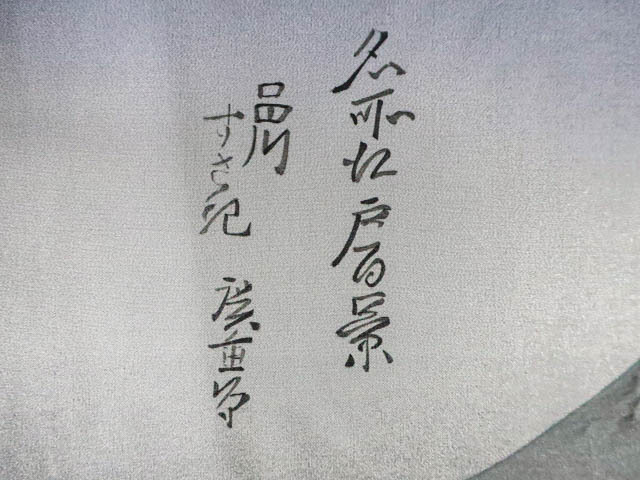 名所江戸百景
品川
すさき
廣重筆